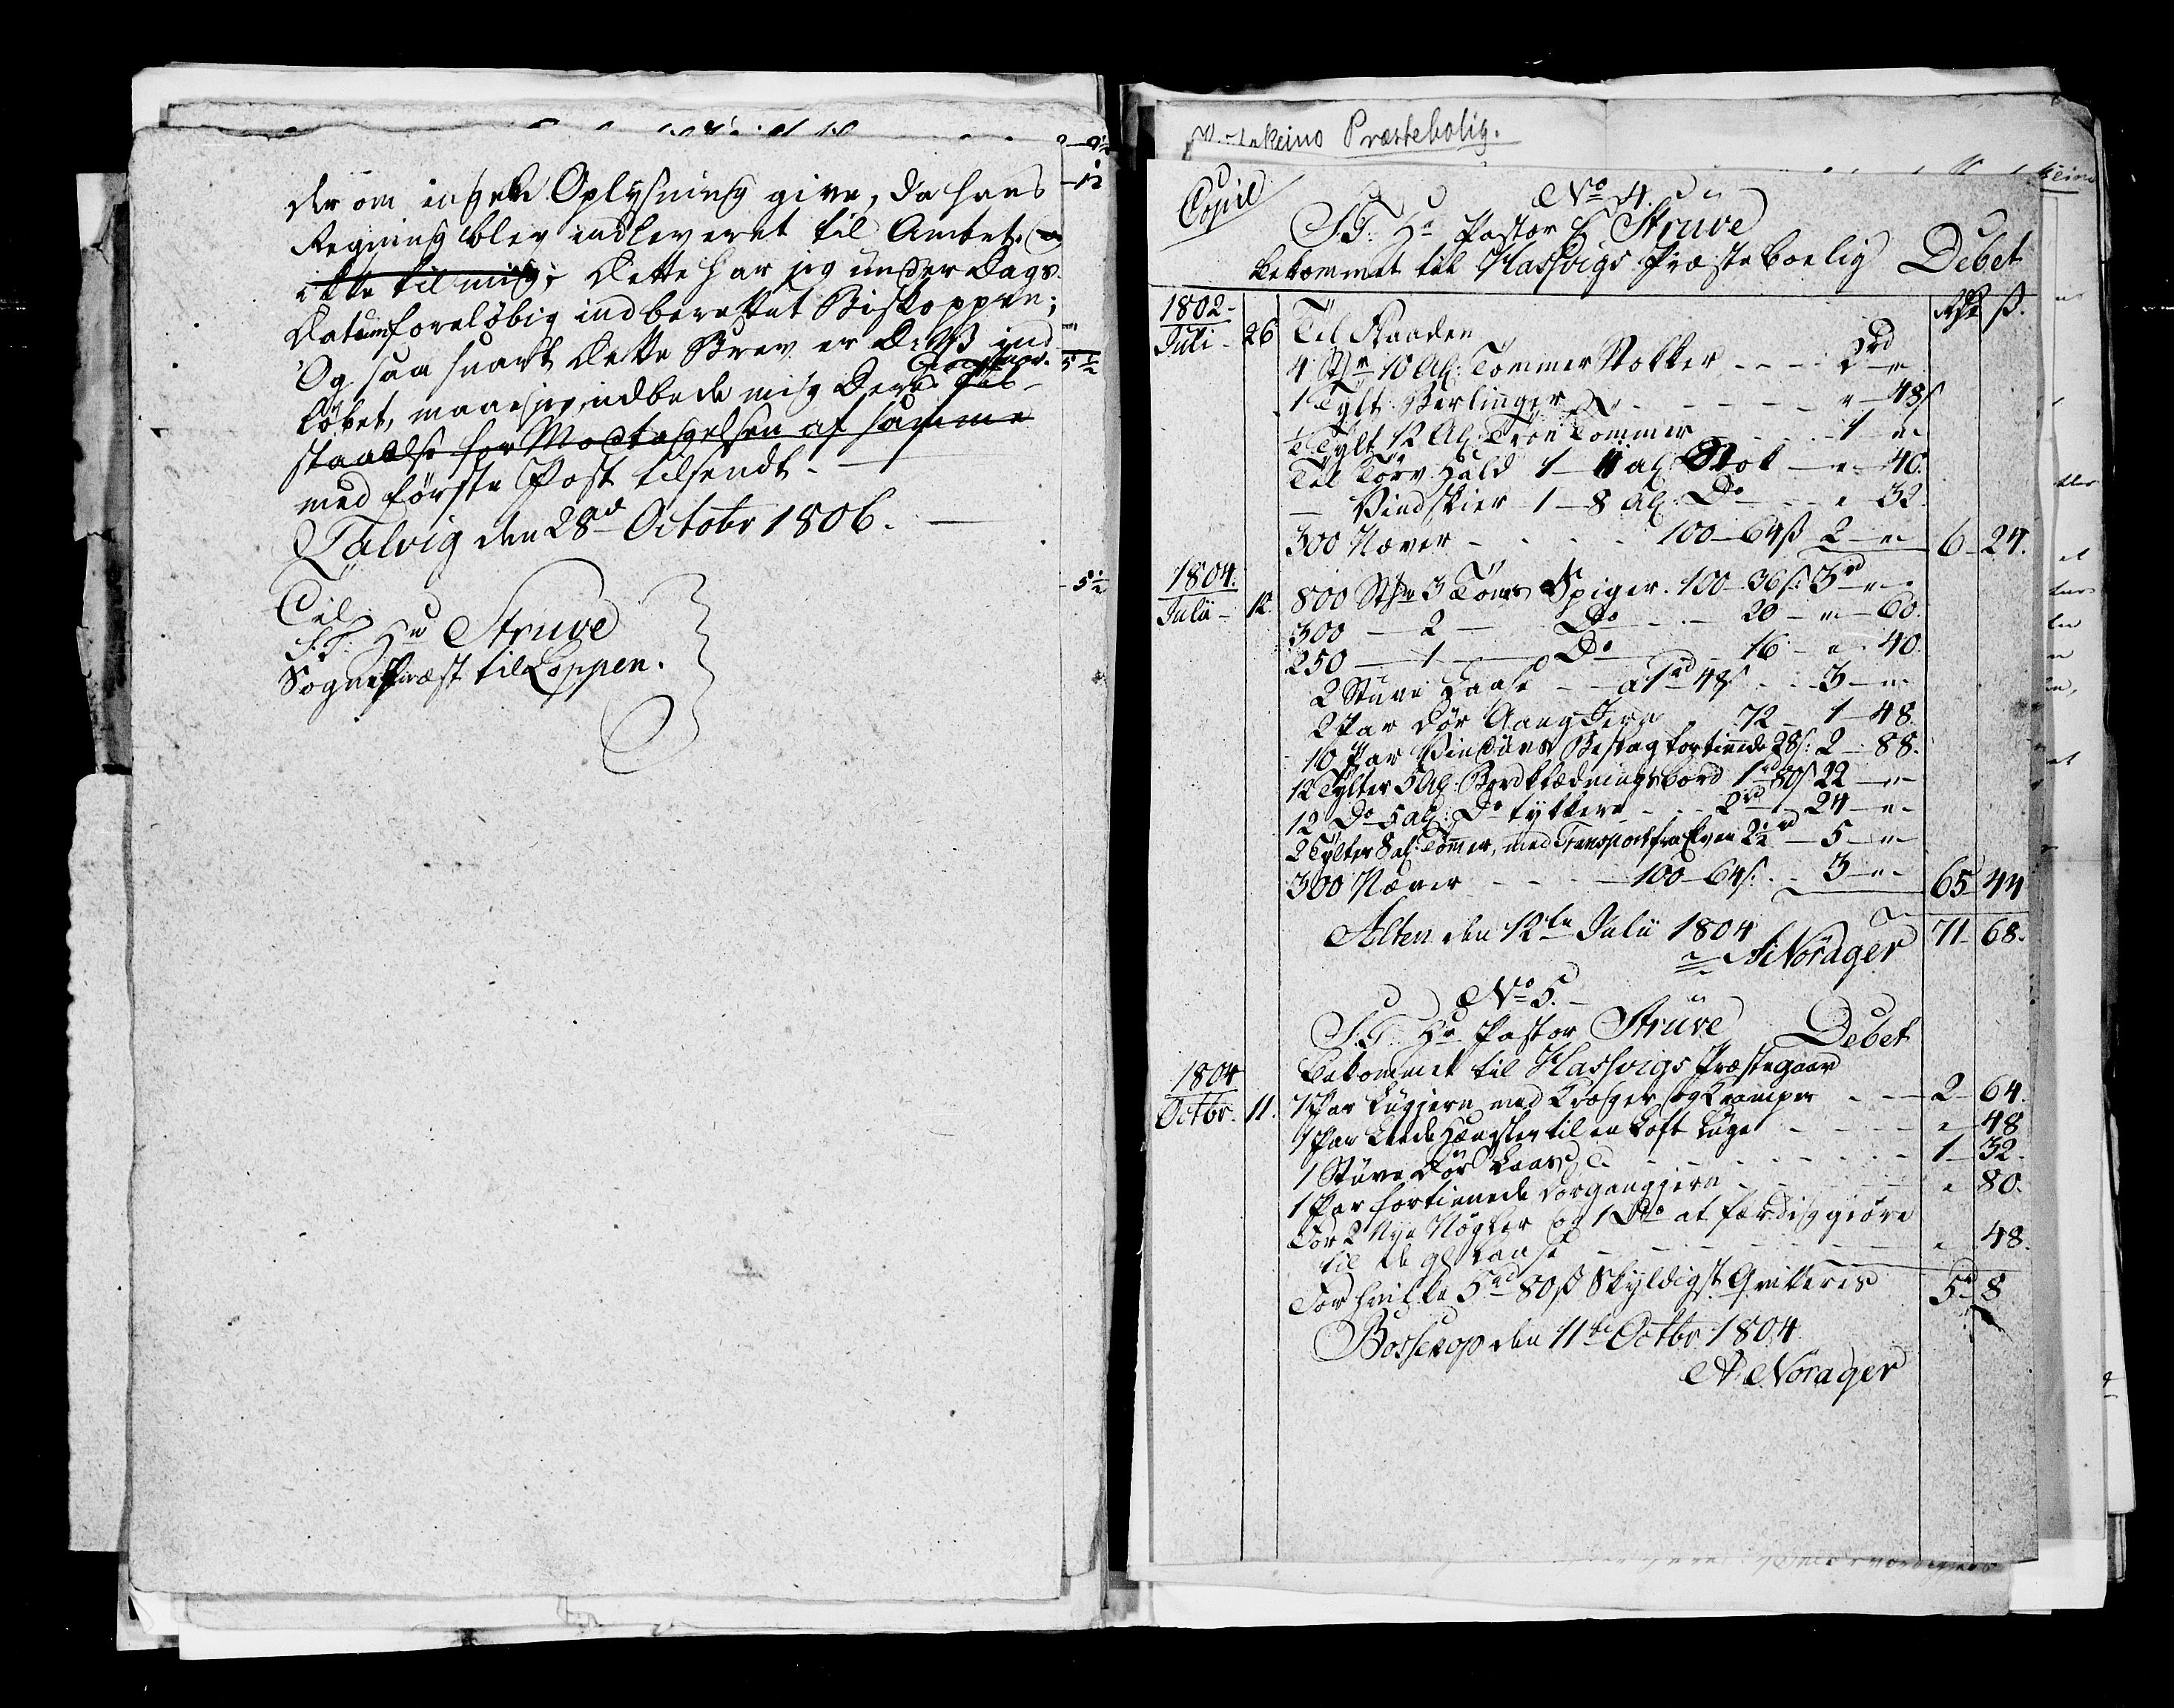 der om ingen Oplysning give, da hans
Regning blev indleveret til Amtet.
ikke til mig. Dette har jeg under Dags
Datum foreløbig indberettet Biskoppen;
Og saa snart dette Brev er ind
løbet, maae jeg udbede mig Deres
staaelse for Modtagelsen af samme
med første Post tilsendt. —
Talvig den 28de Octobr 1806. —
Til
S.T. Hr Struve
Sogne Præst til Loppen.
Præstebolig.
Copie
No 4.
S.T. Hr Pastor Struve
bekommet til Hasvigs Præsteboelig Debet
Rdr ß.
1802 -
Juli - 26 Til Naaden
4 St 10 Al: Tømmer Stokker - - - - 2rd "
1 Tylt Berlinger - - - - " - 48ß
1 Tylt 12 Al: Tømmer - - - 1 "
Til Tørv Hald 1 - 11 al: Stok - " - 40.
— Vindskier 1 - 8 Al: Do - - " 32.
300 Næver - - - - 100 - 64ß 2 - " 6 - 24.
1804.
Julii - 12. 800 St 3 Toms Spiger. 100 - 36ß: 3rd "
300 — 2 — Do - - - 20 - " - 60.
250 — 1 — Do - - 16 - " - 40.
2 Stuve Laase - - a 1rd 48ß - - 3 - "
2 Par dør Gang Jern 72 - 1 - 48.
10 Par Vindues Beslag fortinnede 28ß: 2 - 88.
12 Tylter 5 Al: Bordklædningsbord 1rd 80ß 22 - "
12 Do 5 al: Do tykkere - - - 2rd - 24 - "
2 Tylter 8 al: Tømmer, med Transport fra Elven 2½rd - 5 - "
300 Næver - - - - 100 - 64ß: - 3 - " 65 44
71 - 68.
Alten den 12te Julii 1804
A: Norager
No 5. -
S.T. Hr Pastor Struve Debet
bekommet til Hasvigs Præstegaard
1804
Octbr. 11. 1 Par Lugjern med Kroger og Kramper - - - 2 - 64.
1 Par Hængsler til en Loft Luge - - - - " - 48
1 Stuve Dør Laas - - - - - - 1 - 32.
1 Par fortinnede dørgangjern - - - - " 80.
For 2 Nye Nøgler og 1 Do at færdiggiøre
til de gl Laase - - - - - - " 48.
For hvilke 5rd 80ß Skyldigst Qvitteres 5rd 8
Bossekop den 11te Octbr 1804
A. Norager